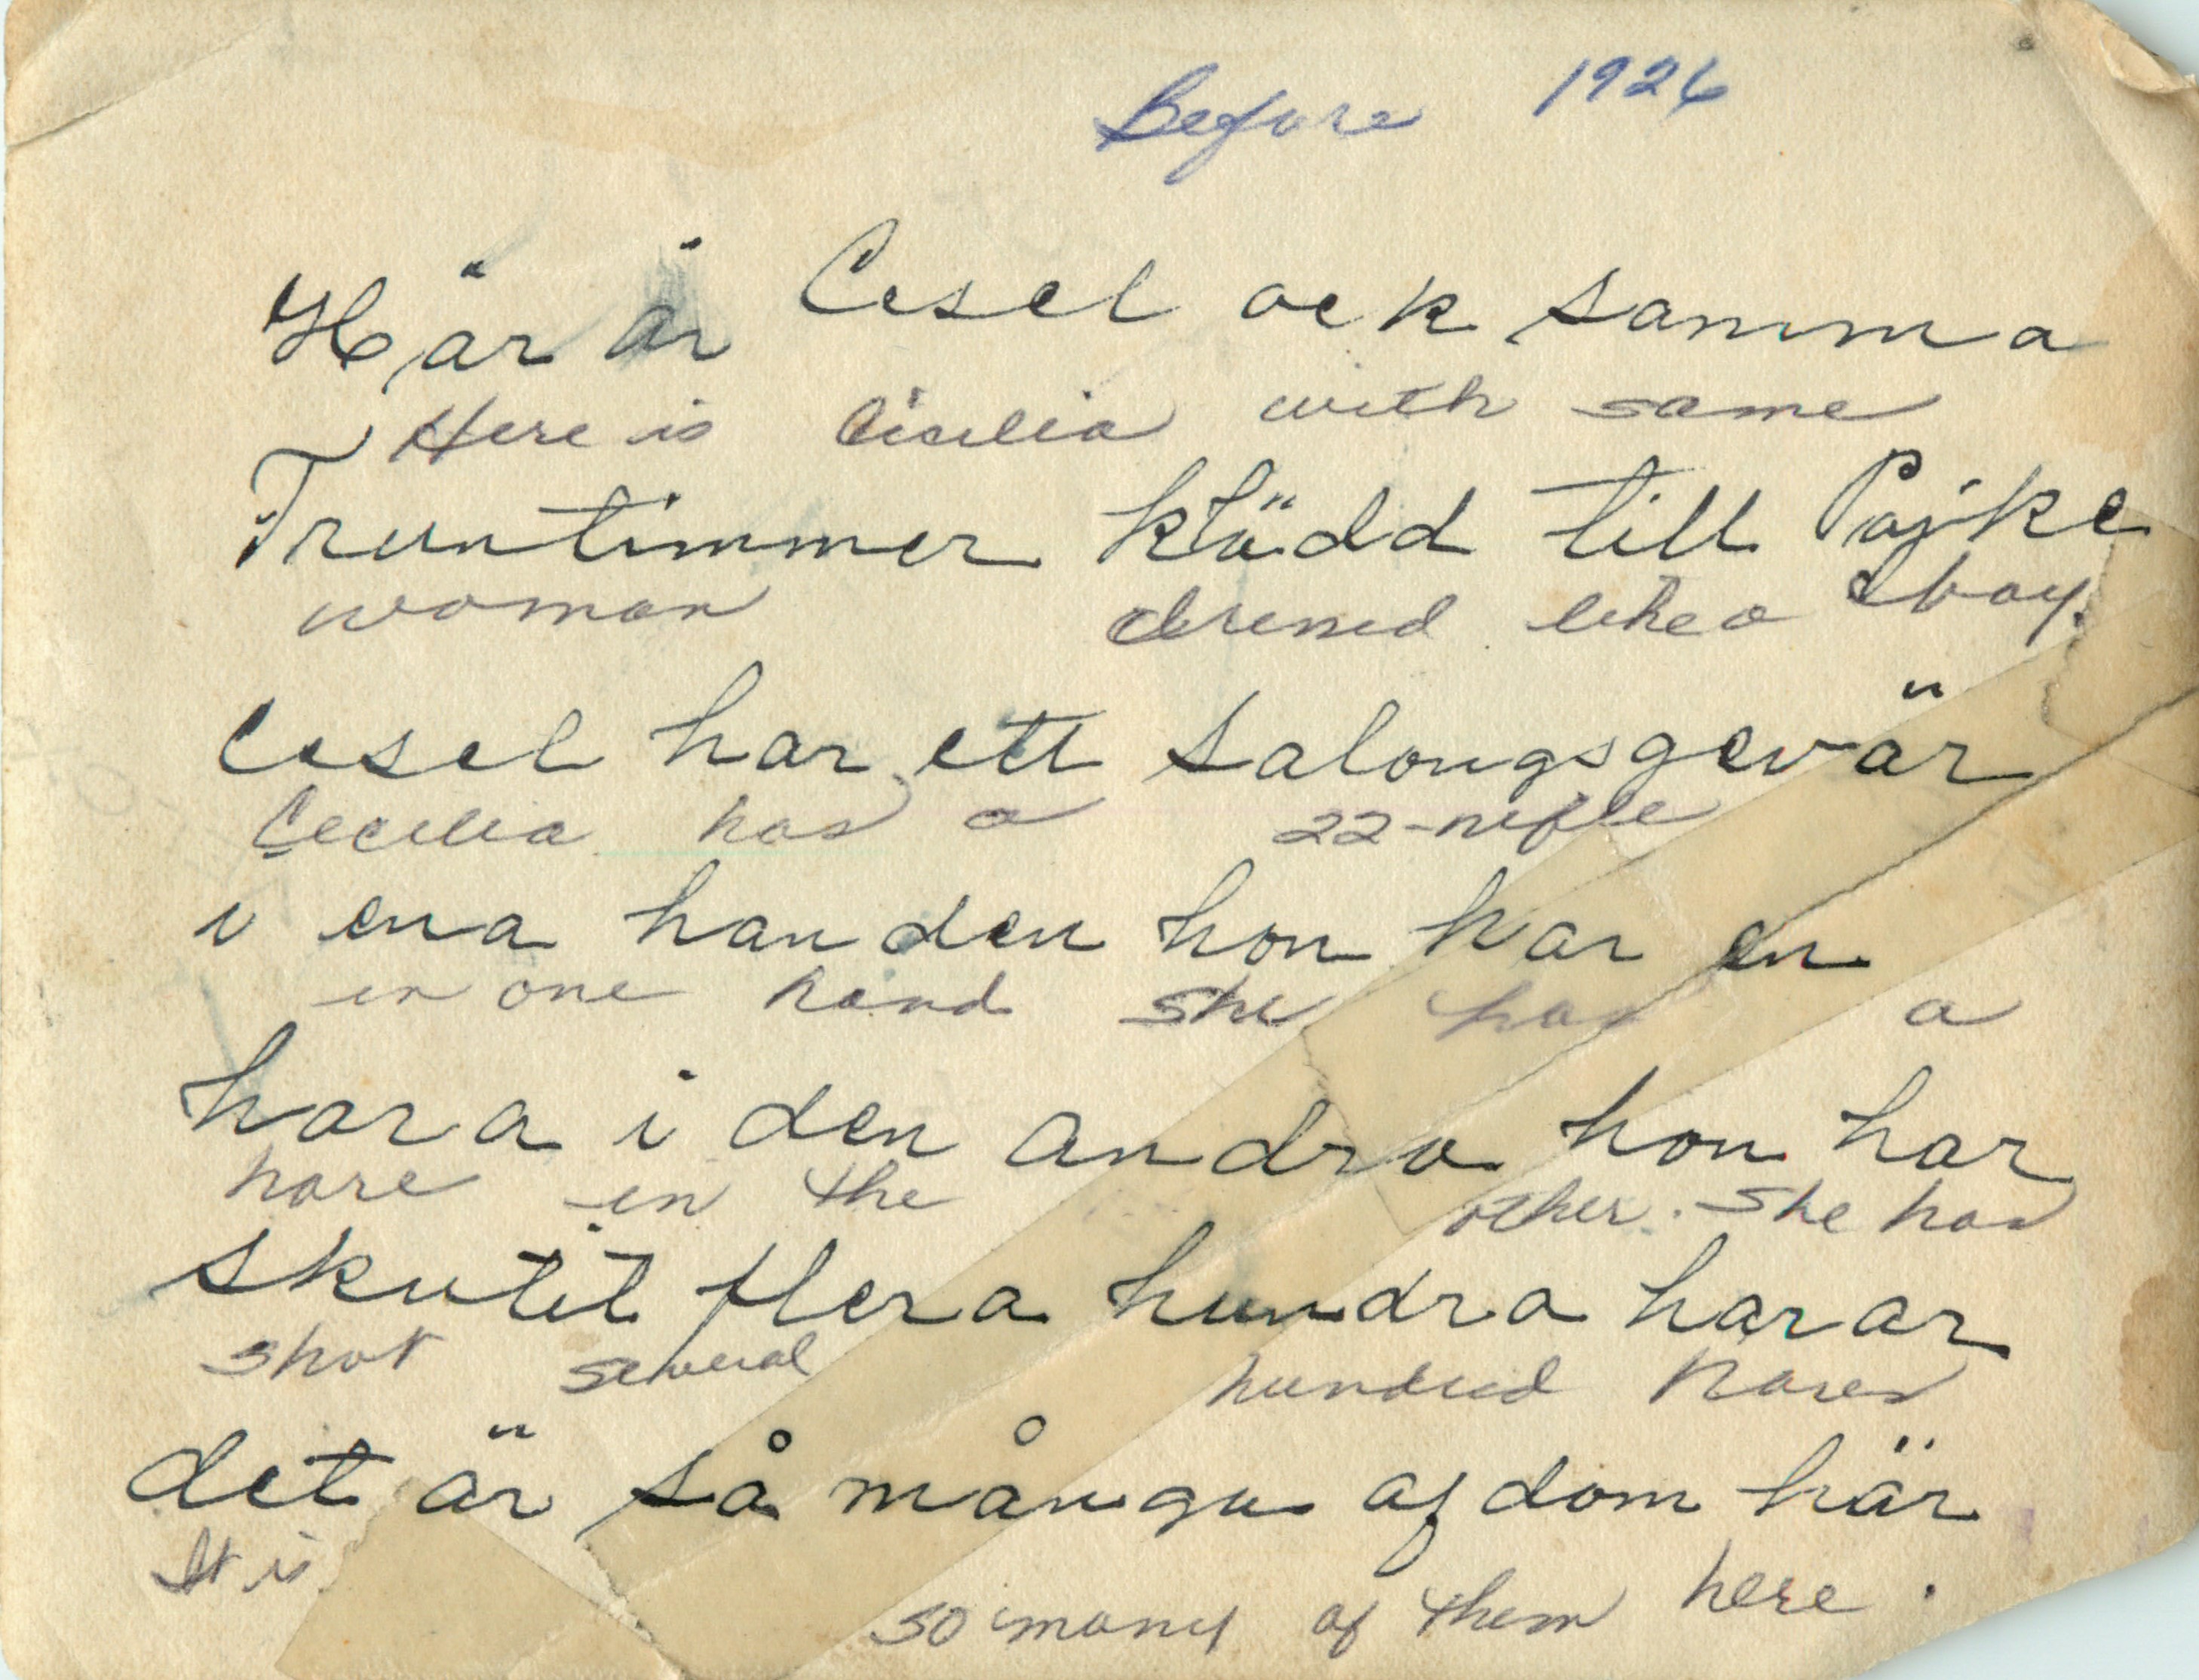 Before 1926
Här är Cesel ock samma
Here is Cisilia with same
Fruntimmer klädd till Pojke
woman dressed like a boy.
Cesel har ett salongsgevär
Cecilia has a 22-rifle
i ena handen hon har en
in one hand she has a
hara i den andra hon har
hare in the other. She has
skutit flera hundra harar
shot several hundred hares
det är så många af dom här
It is so many of them here.